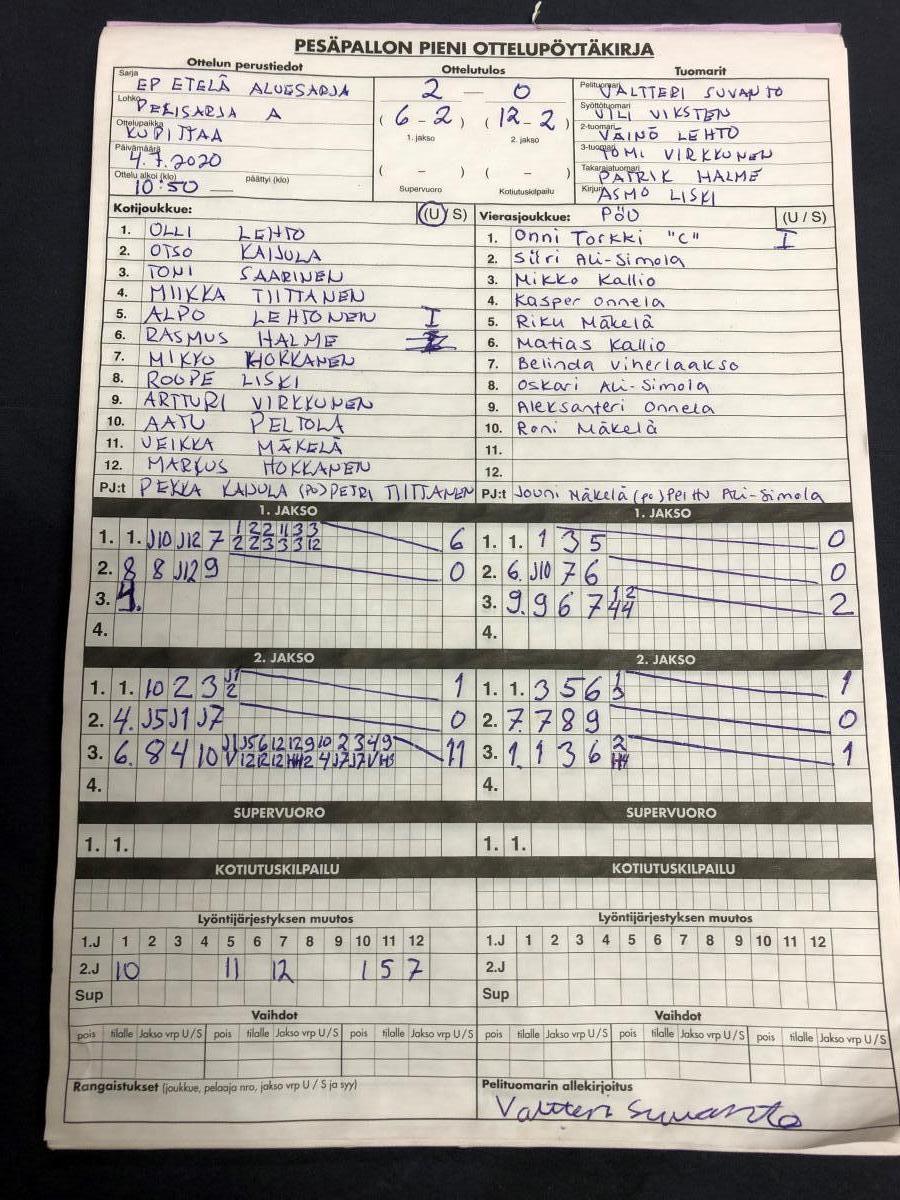 PESÄPALLON PIENI OTTELUPÖYTÄKIRJA
Ottelun perustiedot Ottelutulos Tuomarit
Sarja EP ETELÄ ALUESARJA
Lohko PELISARJA A
Ottelupaikka KUPITTAA
Päivämäärä 4.7.2020
Ottelu alkoi (klo) 10:50 päättyi (klo)
2 — 0
(6 - 2) (12 - 2)
1. jakso 2. jakso
( – ) ( – )
Supervuoro Kotiutuskilpailu
Pelituomari VALTTERI SUVANTO
Syöttötuomari VILI VIKSTEN
2-tuomari VÄINÖ LEHTO
3-tuomari TOMI VIRKKUNEN
Takarajatuomari PATRIK HALME
Kirjuri ASMO LISKI
Kotijoukkue: (U / S)
1. OLLI LEHTO
2. OTSO KAIJULA
3. TONI SAARINEN
4. MIIKKA TIITTANEN
5. ALPO LEHTONEN I
6. RASMUS HALME
7. MIKKO HOKKANEN
8. ROOPE LISKI
9. ARTTURI VIRKKUNEN
10. AATU PELTOLA
11. VEIKKA MÄKELÄ
12. MARKUS HOKKANEN
PJ:t PEKKA KAIJULA (PO) PETRI TIITTANEN
Vierasjoukkue: PöU (U / S)
1. Onni Torkki "C" I
2. Siiri Ali-Simola
3. Mikko Kallio
4. Kasper Onnela
5. Riku Mäkelä
6. Matias Kallio
7. Belinda Viherlaakso
8. Oskari Ali-Simola
9. Aleksanteri Onnela
10. Roni Mäkelä
11.
12.
PJ:t Jouni Mäkelä (po) Ali-Simola
1. JAKSO
1. 1. J10 J12 7 1 2 2 11 3 3 6
2 2 3 3 3 12
2. 8 8 J12 9 0
3. 9.
4.
1. JAKSO
1. 1. 1 3 5 0
2. 6. J10 7 6 0
3. 9. 9 6 7 1 2 2
4 4
4.
2. JAKSO
1. 1. 10 2 3 J1 1
2
2. 4. J5 J1 J7 0
3. 6. 8 4 10 J1 J5 6 12 12 9 10 2 3 4 9 11
V 12 12 12 HH2 4 J7 J7 V H3
4.
2. JAKSO
1. 1. 3 5 6 1 1
3
2. 7. 7 8 9 0
3. 1. 1 3 6 2 1
H4
4.
SUPERVUORO
1. 1.
SUPERVUORO
1. 1.
KOTIUTUSKILPAILU
KOTIUTUSKILPAILU
Lyöntijärjestyksen muutos
1.J 1 2 3 4 5 6 7 8 9 10 11 12
2.J 10 11 12 1 5 7
Sup
Lyöntijärjestyksen muutos
1.J 1 2 3 4 5 6 7 8 9 10 11 12
2.J
Sup
Vaihdot
pois tilalle Jakso vrp U / S pois tilalle Jakso vrp U / S pois tilalle Jakso vrp U / S
Vaihdot
pois tilalle Jakso vrp U / S pois tilalle Jakso vrp U / S pois tilalle Jakso vrp U / S
Rangaistukset (joukkue, pelaaja nro, jakso vrp U / S ja syy)
Pelituomarin allekirjoitus
Valtteri Suvanto